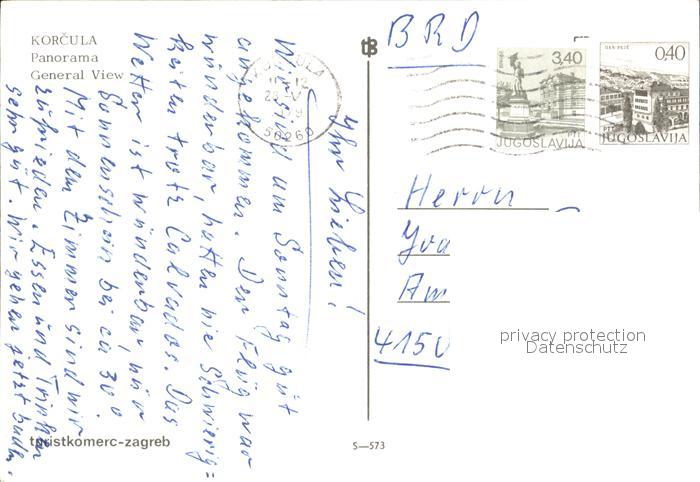 KORČULA
Panorama
General View
Ihr Lieben!
Wir sind am Sonntag gut
angekommen. Der Flug war
wunderbar, hatten nie Schwierig=
keiten trotz Calvados. Das
Wetter ist wunderbar, nur
Sonnenschein bei ca 30°
Mit dem Zimmer sind wir
zufrieden. Essen und Trinken
sehr gut. Wir gehen jetzt baden.
turistkomerc-zagreb
S—573
BRD
3,40
PTT
JUGOSLAVIJA
0,40
PTT
JUGOSLAVIJA
KORČULA
50260
Herrn
Am
4150
privacy protection
Datenschutz